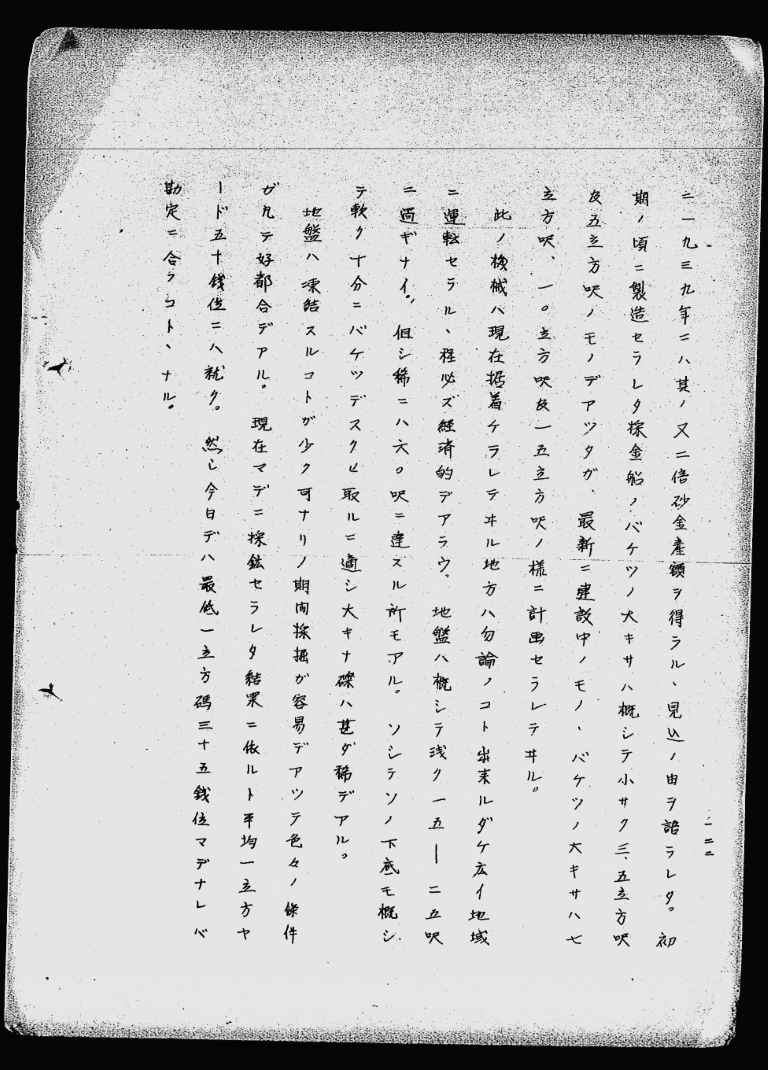 一二二
ニ一九三九年ニハ其ノ又二倍砂金産額ヲ得ラル、見込ノ由ヲ語ラレタ。初
期ノ頃ニ製造セラレタ採金船ノバケツノ大キサハ概シテ小サク三、五立方呎
及五立方呎ノモノデアツタガ、最新ニ建設中ノモノ、バケツノ大キサハ七
立方呎、一〇立方呎及一五立方呎ノ様ニ計画セラレテヰル。
此ノ機械ハ現在据着ケラレテヰル地方ハ勿論ノコト出来ルダケ広イ地域
ニ運転セラル、程必ズ経済的デアラウ。地盤ハ概シテ浅ク一五―二五呎
ニ過ギナイ。但シ稀ニハ六〇呎ニ達スル所モアル。ソシテソノ下底モ概シ
テ軟ク十分ニバケツデスクヒ取ルニ適シ大キナ礫ハ甚ダ稀デアル。
地盤ハ凍結スルコトガ少ク可ナリノ期間採掘が容易デアツテ色々ノ條件
ガ凡テ好都合デアル。現在マデニ採鉱セラレタ結果ニ依ルト平均一立方ヤ
ード五十銭位ニハ就ク。然シ今日デハ最低一立方碼三十五銭位マデナレバ
勘定ニ合ラコト、ナル。